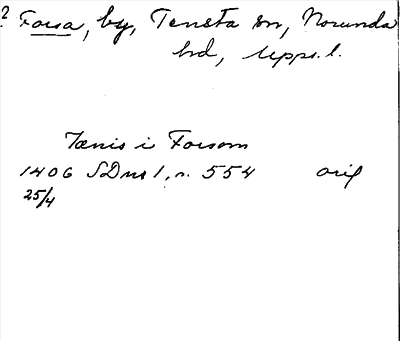 ? Forsa, by, Tensta sn, Norunda
hd, Upps. l.
Tænis i Forsom
1406 SDns 1, n. 554 orig
25/4